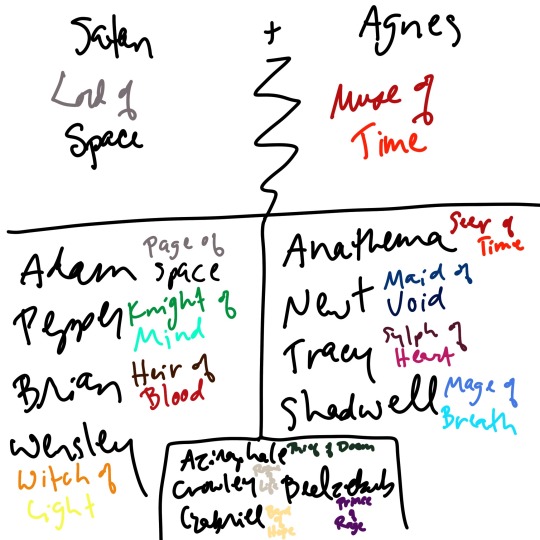 Satan + Agnes
Lord of Muse of
Space Time
Adam Page of Space
Pepper Knight of Mind
Brian Heir of Blood
Wensley
Witch of
Light
Anathema Seer of Time
Newt Maid of Void
Tracy Sylph of Heart
Shadwell Mage of Breath
Aziraphale Thief of Doom
Crowley Rogue of Life
Beelzebub Prince of Rage
Gabriel Bard of Hope